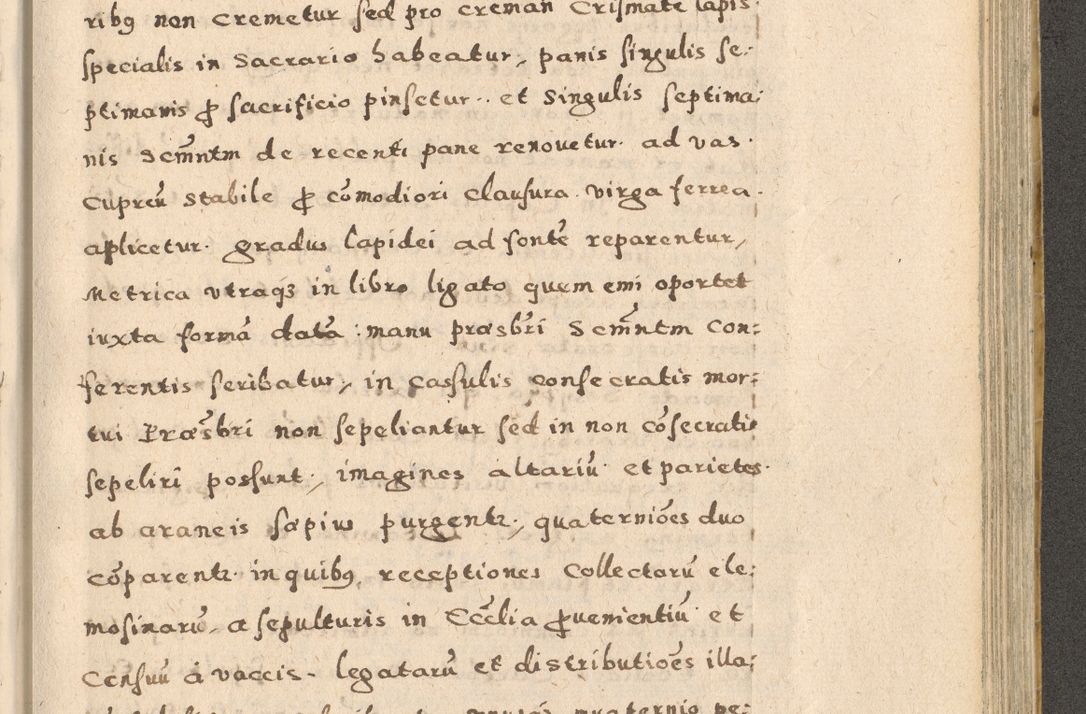 ribꝯ non cremetur sed pro creman Crismate lapis
specialis in Sacrario habeatur, panis singulis se-
ptimanis ꝓ sacrificio pinsetur. et Singulis septima:
nis Scm̃ntm de recenti pane renouetur. ad vas.
Cupreū stabile ꝓ cōmodiori clausura. virga ferrea.
aplicetur. gradus lapidei ad fontē reparentur,
Metrica vtraqꝫ in libro ligato quem emi oportet
iuxta formā datā manu præsbr̃i Scm̃ntm Con:
ferentis scribatur, in Cassulis consecratis mor:
tui Præsb̃ri non sepeliantur sed in non cōsecratis
sepeliri possunt, imagines altariū et parietes.
ab araneis sæpius purgentꝛ, quaterniōes duo
cōparentꝛ in quibꝯ receptiones Collectarū ele:
mosinarū, a sepulturis in Eccl̃ia ꝓuenientiū et
Censuū á vaccis. legatarū et distributiōes illa: